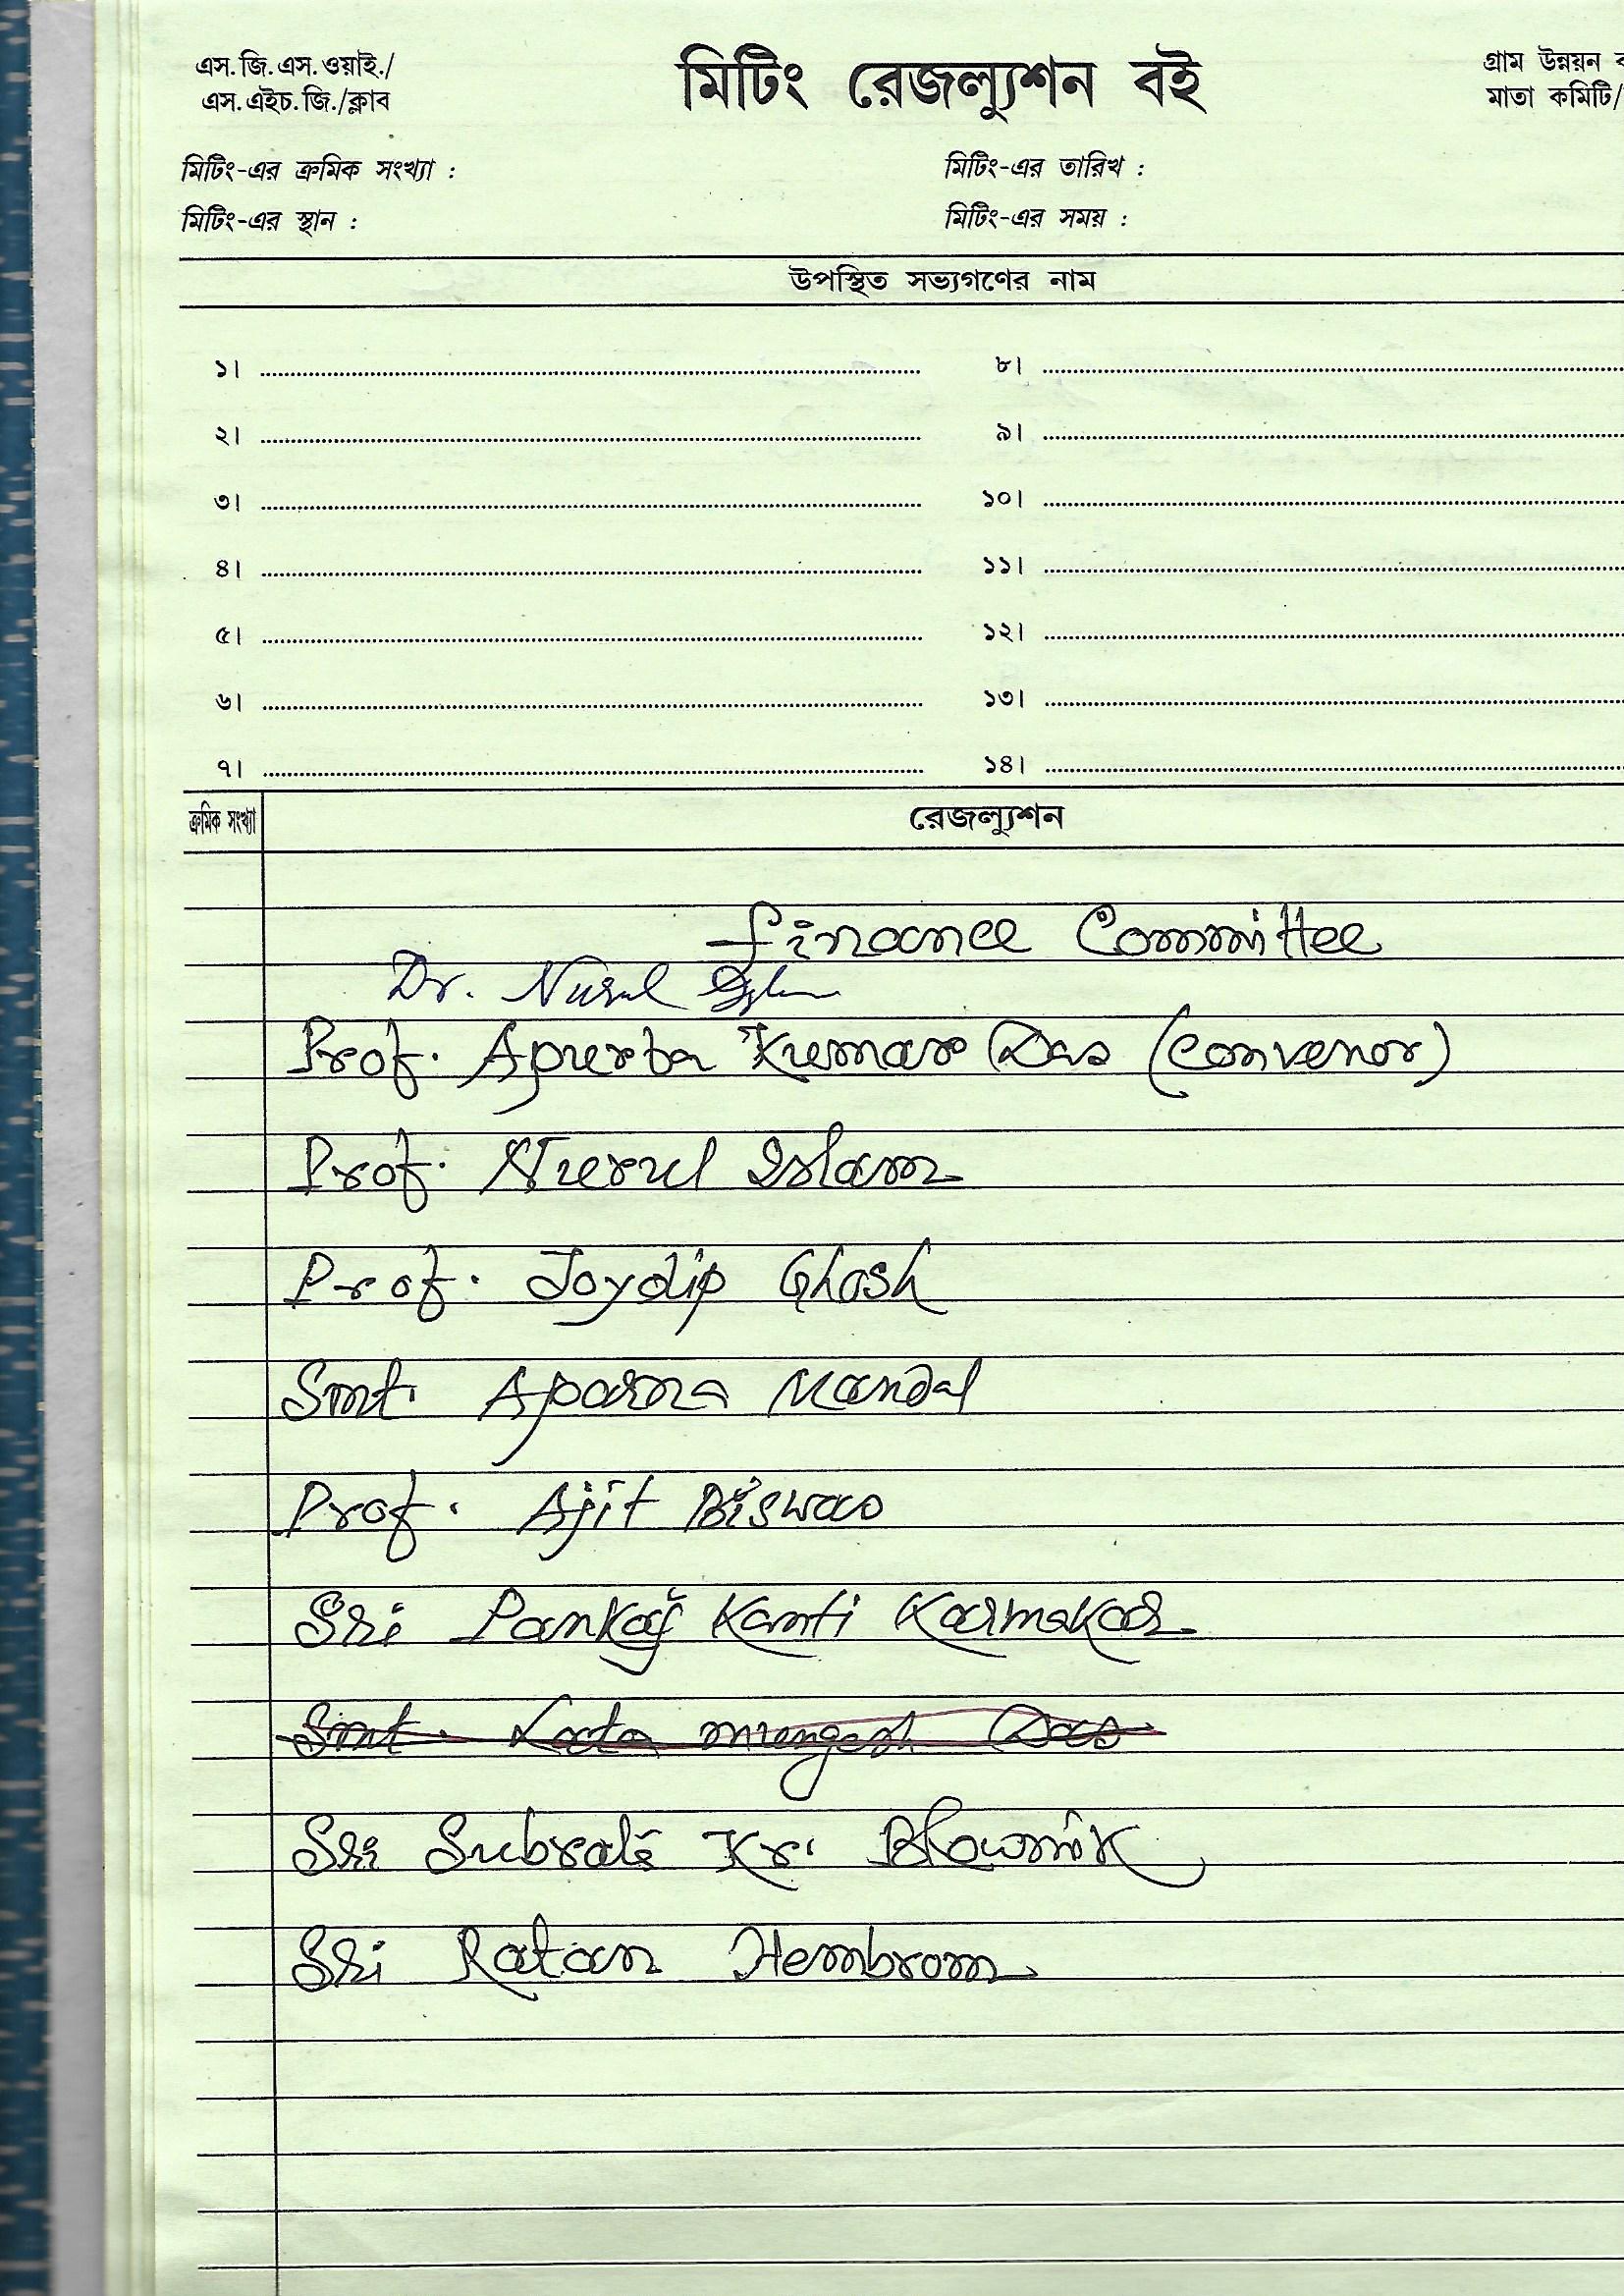 এস.জি.এস.ওয়াই./
এস.এইচ.জি./ক্লাব
মিটিং রেজল্যুশন বই
গ্রাম উন্নয়ন
মাতা কমিটি/
মিটিং-এর ক্রমিক সংখ্যা :
মিটিং-এর তারিখ :
মিটিং-এর স্থান :
মিটিং-এর সময় :
উপস্থিত সভ্যগণের নাম
১।
৮।
২।
৯।
৩।
১০।
৪।
১১।
৫।
১২।
৬।
১৩।
৭।
১৪।
ক্রমিক সংখ্যা
রেজল্যুশন
Finance Committee
Dr. Nurul Islam
Prof. Apurba Kumar Das (Convenor)
Prof. Nurul Islam
Prof. Joydip Ghosh
Smt. Aparna Mandal
Prof. Ajit Biswas
Sri Pankaj Kanti Karmakar
Smt. Lata mungesh Das
Sri Subrata Kr. Bhowmik
Sri Ratan Hembrom